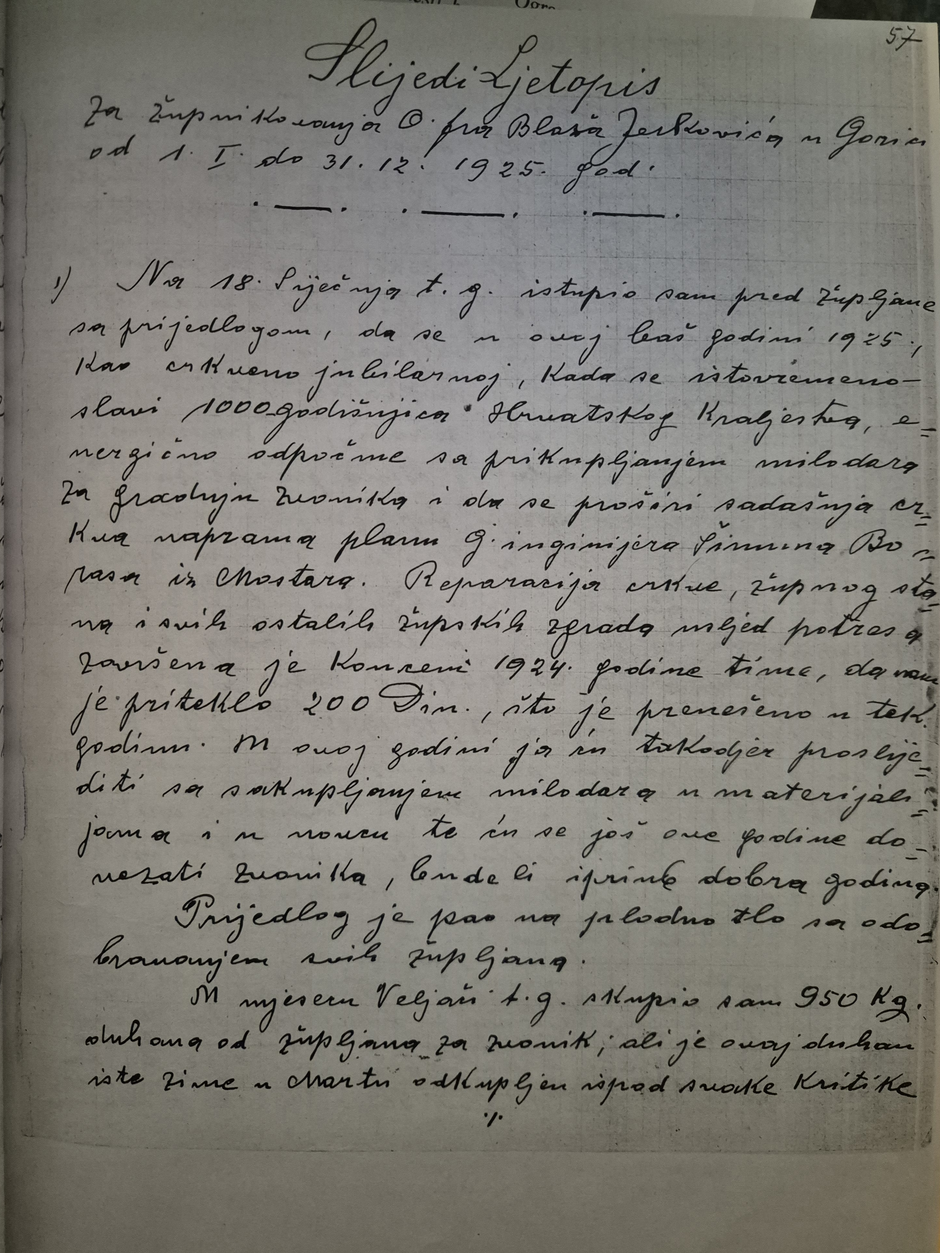 57
Slijedi Ljetopis
Za župnikovanja O. fra Blaža Jerkovića u Gorici
od 1. I. do 31. 12. 1925. god.
1) Na 18. Siječnja t. g. istupio sam pred župljane
sa prijedlogom, da se u ovoj baš godini 1925.,
kao crkveno jubilarnoj, kada se istovremeno
slavi 1000godišnjica Hrvatskog Kraljestva, e=
nergično odpočme sa prikupljanjem milodara
za gradnju zvonika i da se proširi sadašnja cr=
kva naprama planu G. inginijera Šimuna Bo=
rasa iz Mostara. Reparacija crkve, župnog sta=
na i svih ostalih župskih zgrada usljed potresa
završena je koncem 1924. godine time, da nam
je priteklo 200 Din., što je prenešeno u tek.
godinu. U ovoj godini ja ću takodjer proslije=
diti sa sakupljanjem milodara u materijali=
jama i u novcu te ću se još ove godine do=
vezati zvonika, bude li dobra godina.
Prijedlog je pao na plodno tlo sa odo=
bravanjem svih župljana.
U mjesecu Veljači t. g. skupio sam 950 Kg.
duhana od župljana za zvonik; ali je ovaj duhan
iste zime u Martu odkupljen ispod svake kritike
./.